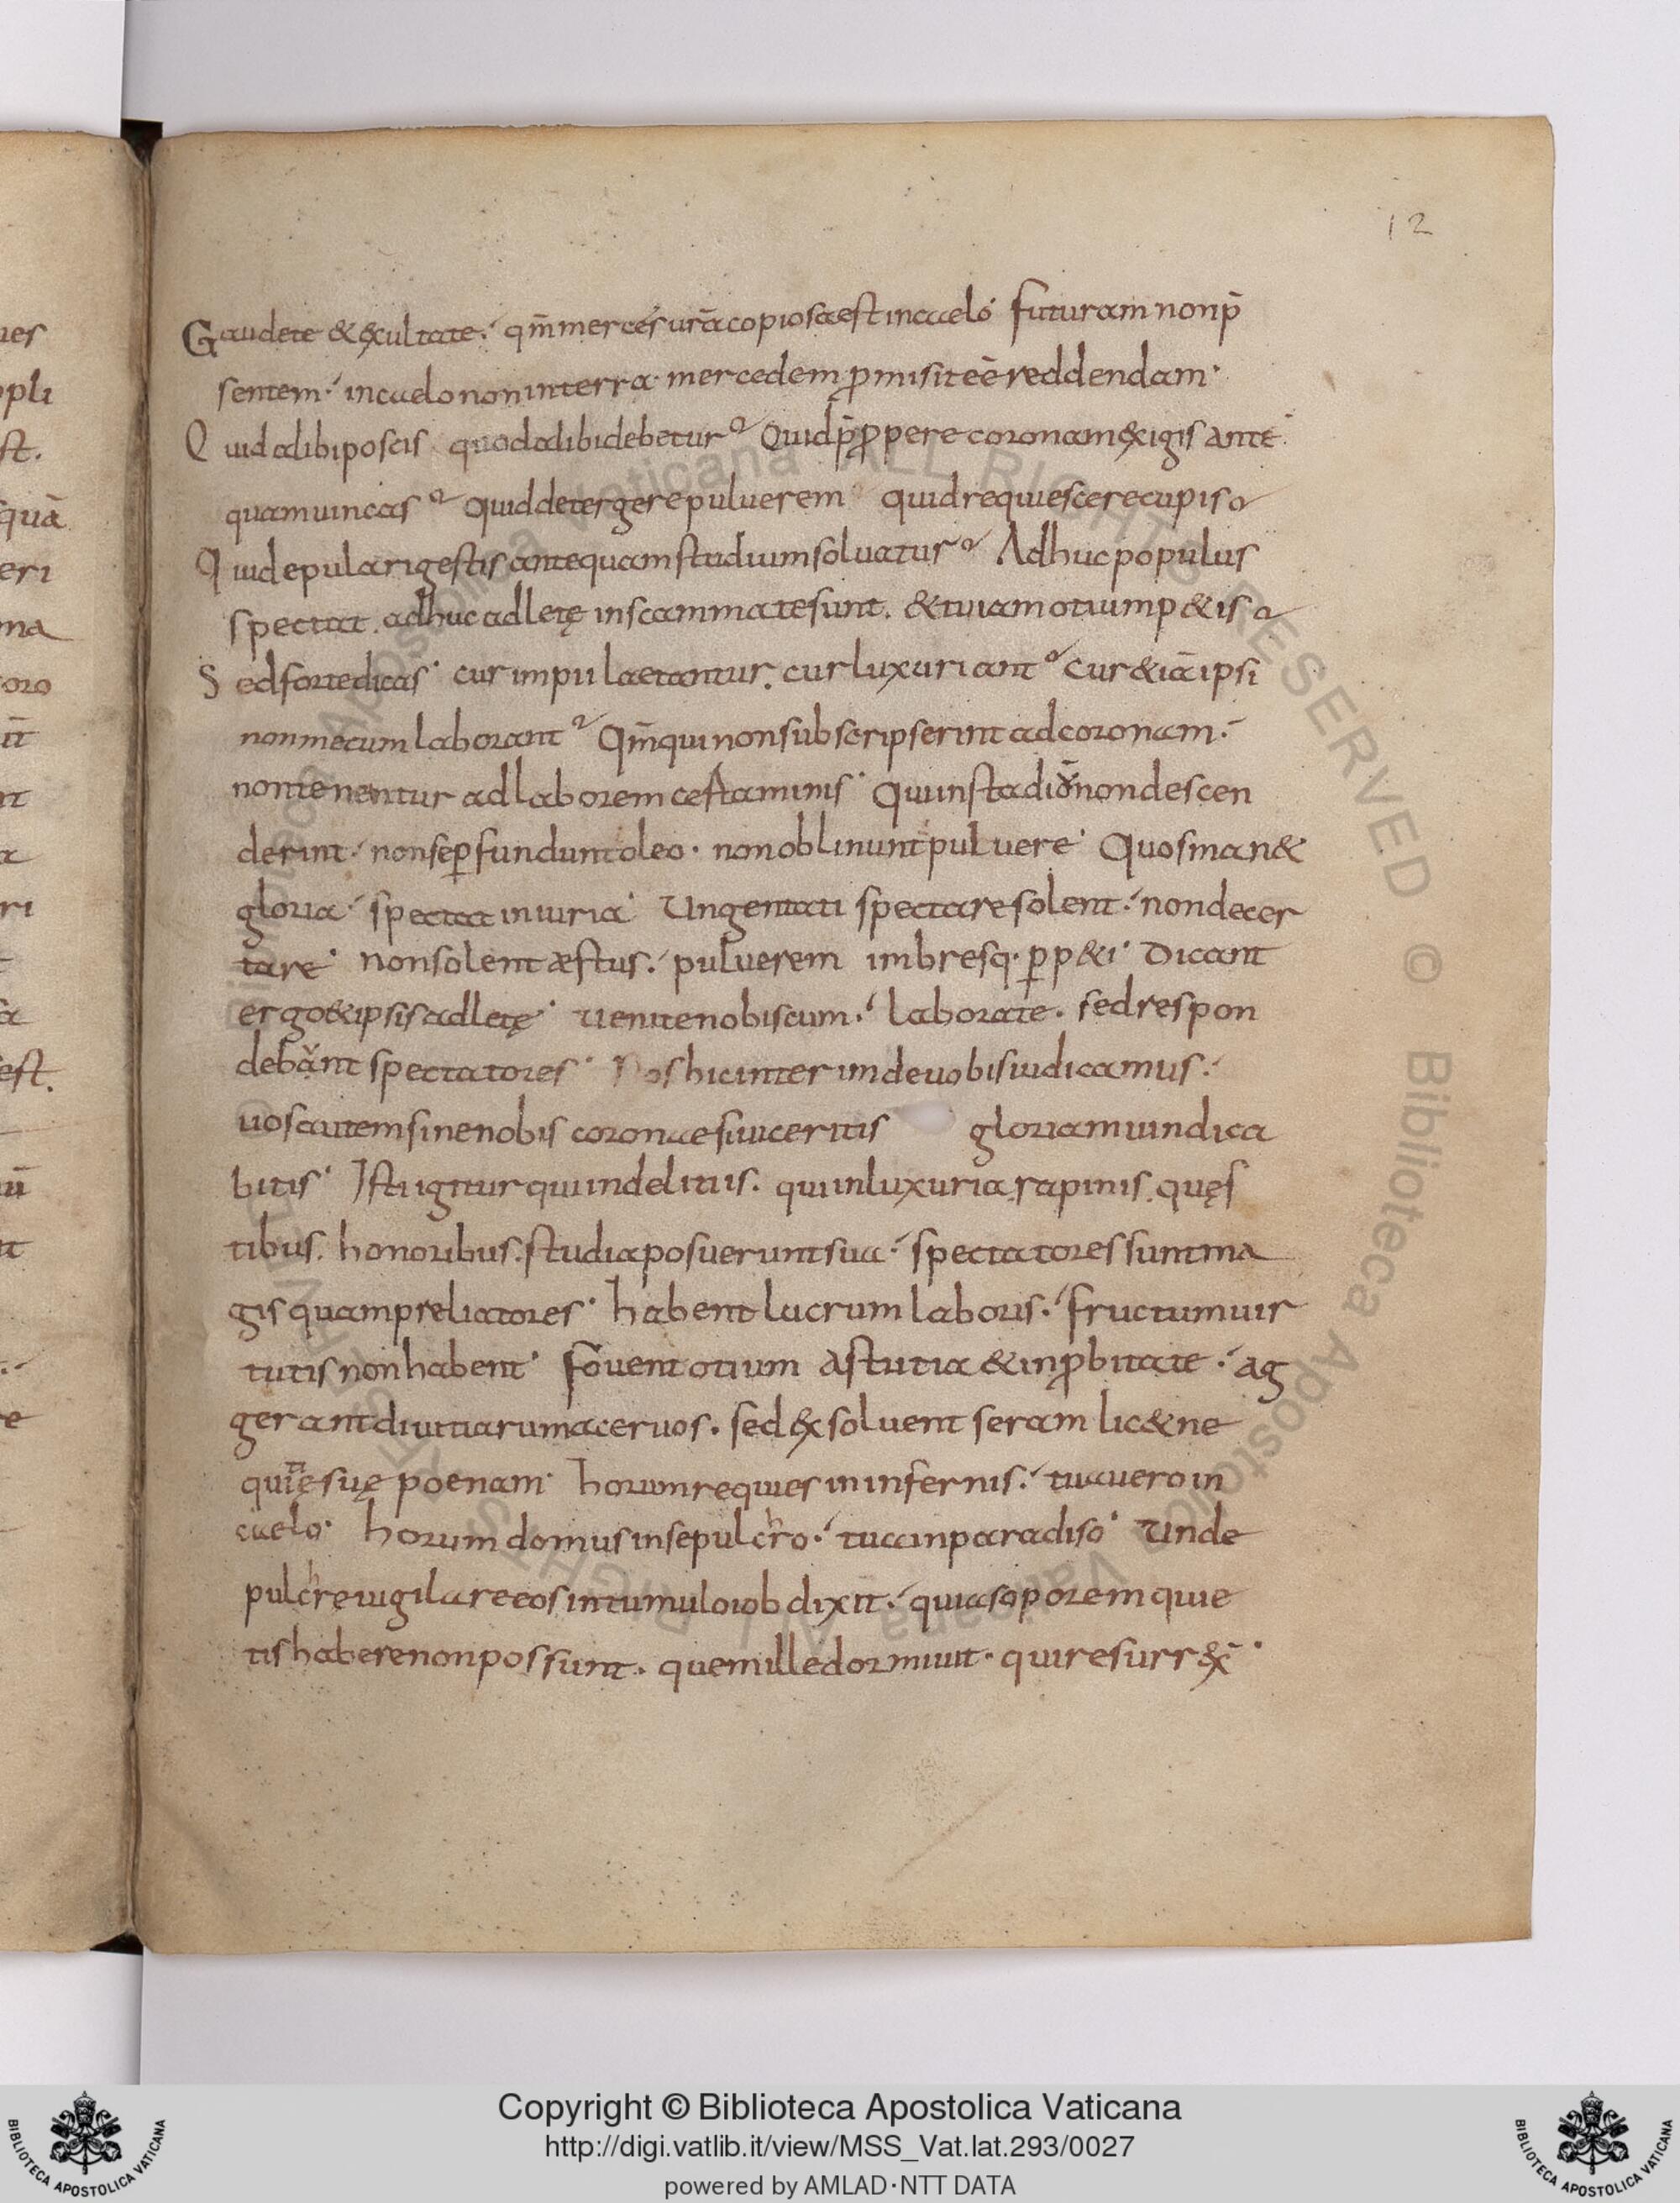 ues
pli
st.
quā
eri
ma
oro
it̄
nt
a
ri
t
sa
est.
ū
it
re
12
Gaudete & exultate. qm̄ merces ur̄a copiosa est in caelo futuram non p̄
sentem. in caelo non in terra. mercedem ꝓmisit eē reddendam.
Quid alibi poscis quod alibi debetur? Quid p̄ꝓpere coronam exigis ante
quam uincas? quid detergere puluerem quid requiescere cupis?
Quid epulari gestis antequam stadium soluatur? Adhuc populus
spectat. adhuc adletę in scammate sunt. & tu iam otium p&is?
Sed forte dicas. cur impii laetantur. cur luxuriant? cur &iā ipsi
non mecum laborant? Qm̄ qui non subscripserint ad coronam.
non tenentur ad laborem certaminis. Qui in stadiū non descen
derint. non se ꝑfundunt oleo. non oblinunt puluere. Quos man&
gloria. spectat iniuria. Ungentati spectare solent. non decer
tare. non solent æstus. puluerem imbresq. ꝑp&i. Dicant
ergo & ipsis adletę. uenite nobiscum. laborate. sed respon
debunt spectatores. Nos hic interim de uobis iudicamus.
uos autem sine nobis coronae si uiceritis gloriam uindica
bitis. Isti igitur qui in delitiis. qui in luxuria, rapinis, quęs
tibus. honoribus. studia posuerunt sua. spectatores sunt ma
gis quam preliatores. habent lucrum laboris. fructum uir
tutis non habent. fouent otium astutia & inꝓbitate. ag
gerant diuitiarum aceruos. sed exsoluent seram lic& ne
quitię suę poenam. horum requies in infernis. tua uero in
caelo. horum domus in sepulchro. tua in paradiso. Unde
pulchre uigilare eos in tumulo iob dixit. quia soporem quie
tis habere non possunt. quem ille dormiuit. qui resurrex̄.
Biblioteca Apostolica Vaticana ALL RIGHTS RESERVED ©
Copyright © Biblioteca Apostolica Vaticana
http://digi.vatlib.it/view/MSS_Vat.lat.293/0027
powered by AMLAD·NTT DATA
BIBLIOTECA APOSTOLICA VATICANA
BIBLIOTECA APOSTOLICA VATICANA